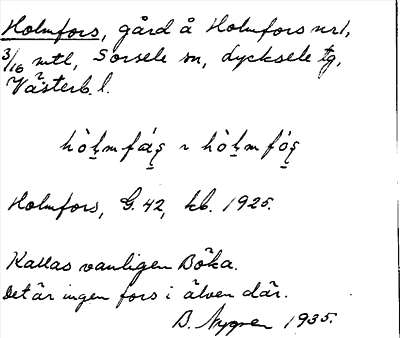 Holmfors, gård å Holmfors nr 1,
3/16 mtl, Sorsele sn, Lycksele tg,
Västerb. l.
Holmfors, G. 42, kb. 1925.
Kallas vanligen Böka.
Det är ingen fors i älven där.
B. Nygren 1935.